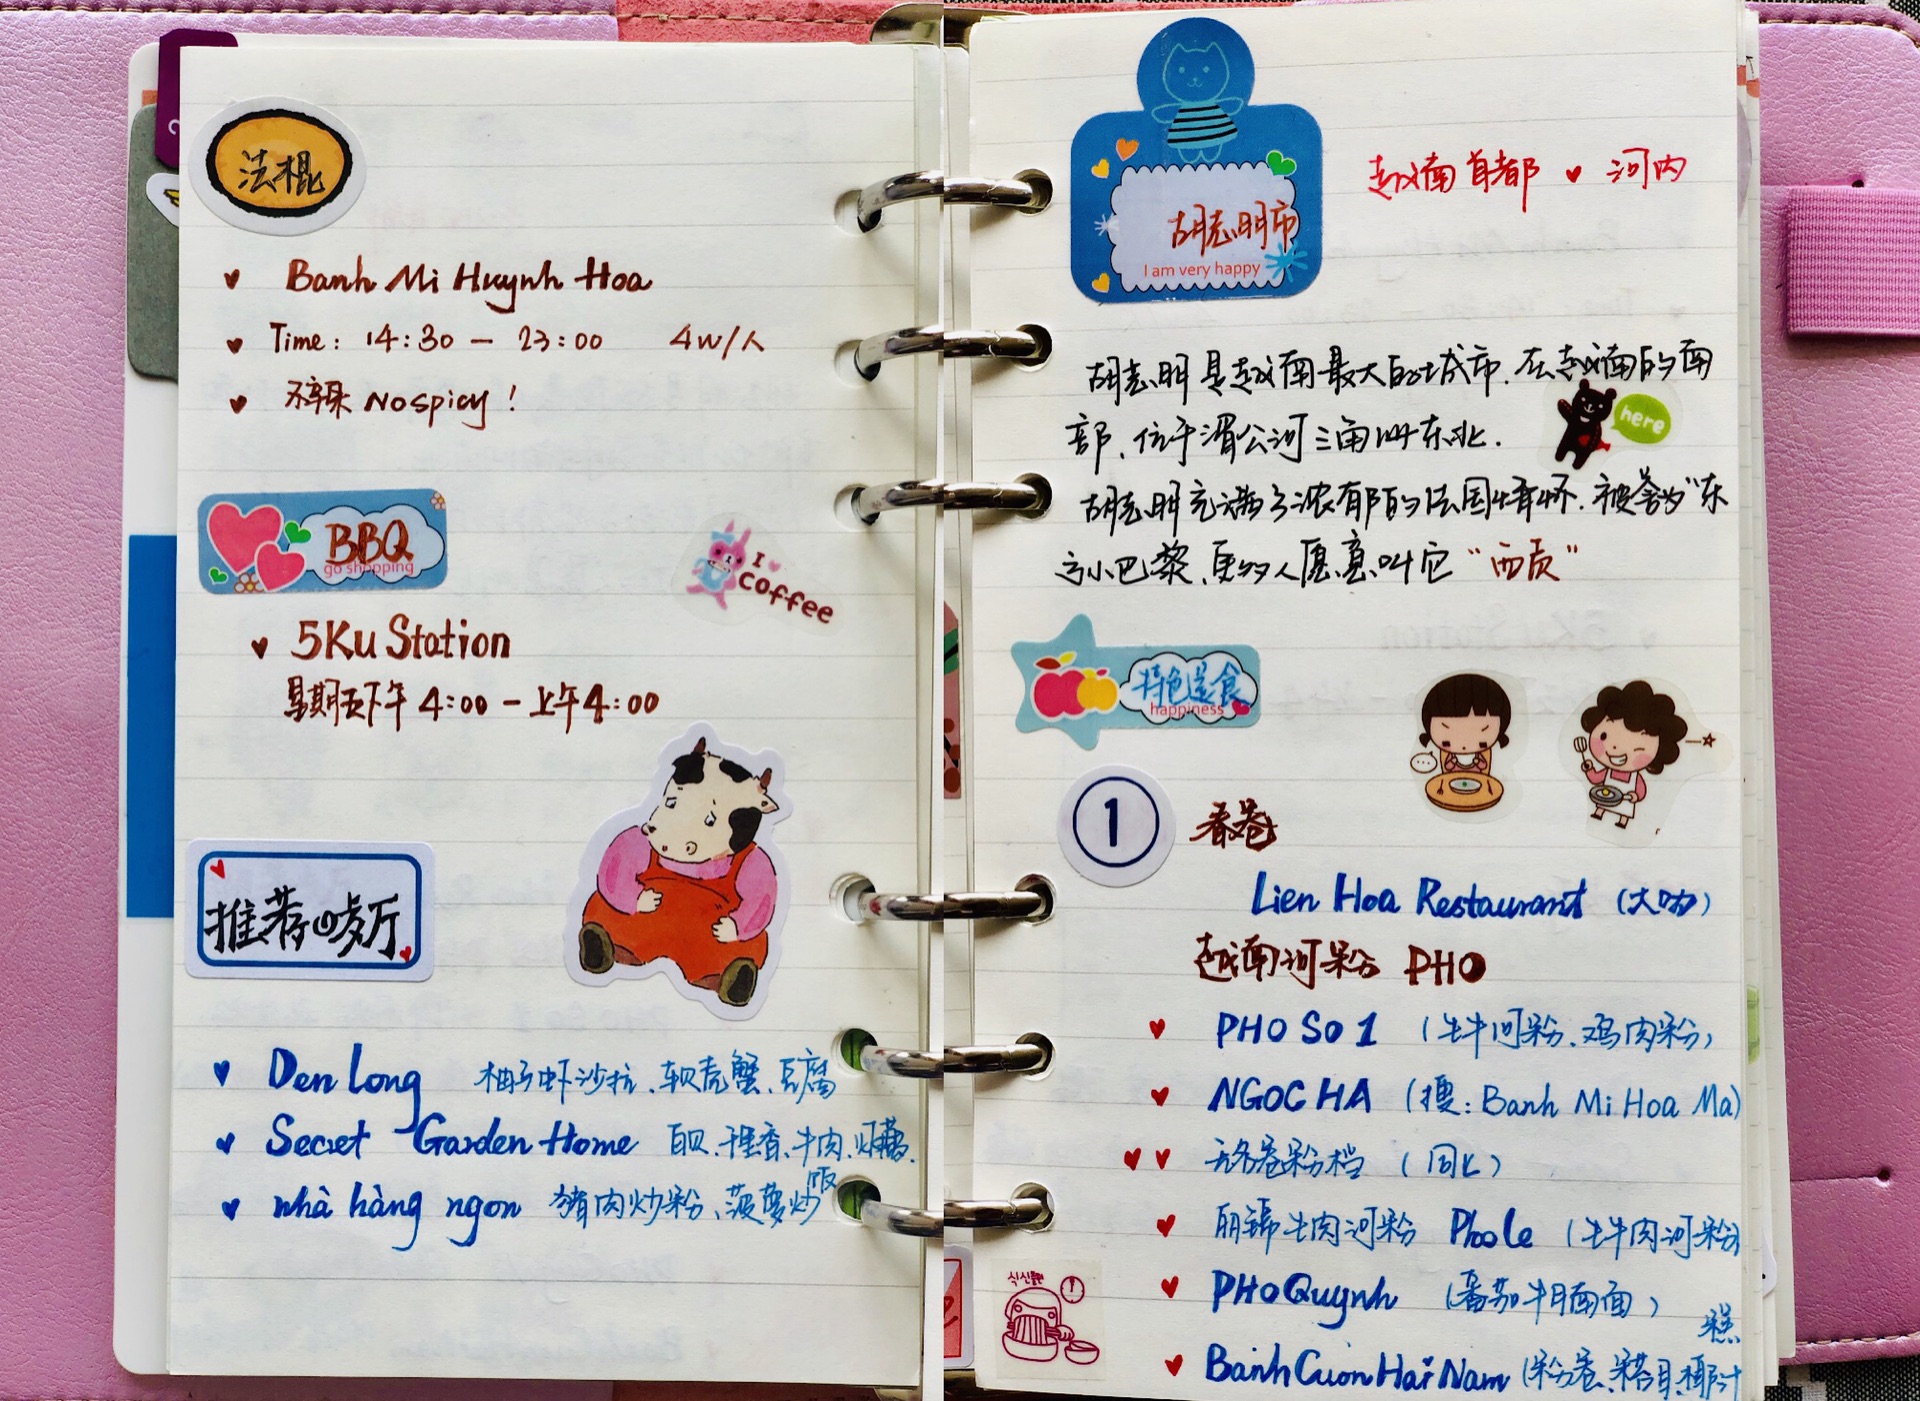 法棍
Banh Mi Huynh Hoa
Time: 14:30 — 23:00 4W/人
不辣 No spicy!
BBQ
go shopping
I
coffee
5Ku Station
星期五下午 4:00 – 上午4:00
推荐口餐厅
Den Long 柚子虾沙拉、软壳蟹、豆腐
Secret Garden Home 牛肉
nhà hàng ngon 猪肉炒粉、菠萝炒饭
胡志明市
I am very happy
越南首都 河内
胡志明是越南最大的城市.在越南的南
部、位于湄公河三角州东北.
here
胡志明充满了浓郁的法国情怀.被誉为"东
方小巴黎、更多人愿意叫它"西贡"
特色美食
happiness
1 春卷
Lien Hoa Restaurant (大叻)
越南河粉 PHO
PHO SO 1 (牛河粉、鸡肉粉)
NGOC HA (搜: Banh Mi Hoa Ma)
无名卷粉档 (同上)
丽锦牛肉河粉 Pho Le (牛肉河粉)
PHO Quynh (番茄牛腩面)
식신
Banh Cuon Hai Nam (粉卷、椰汁糕